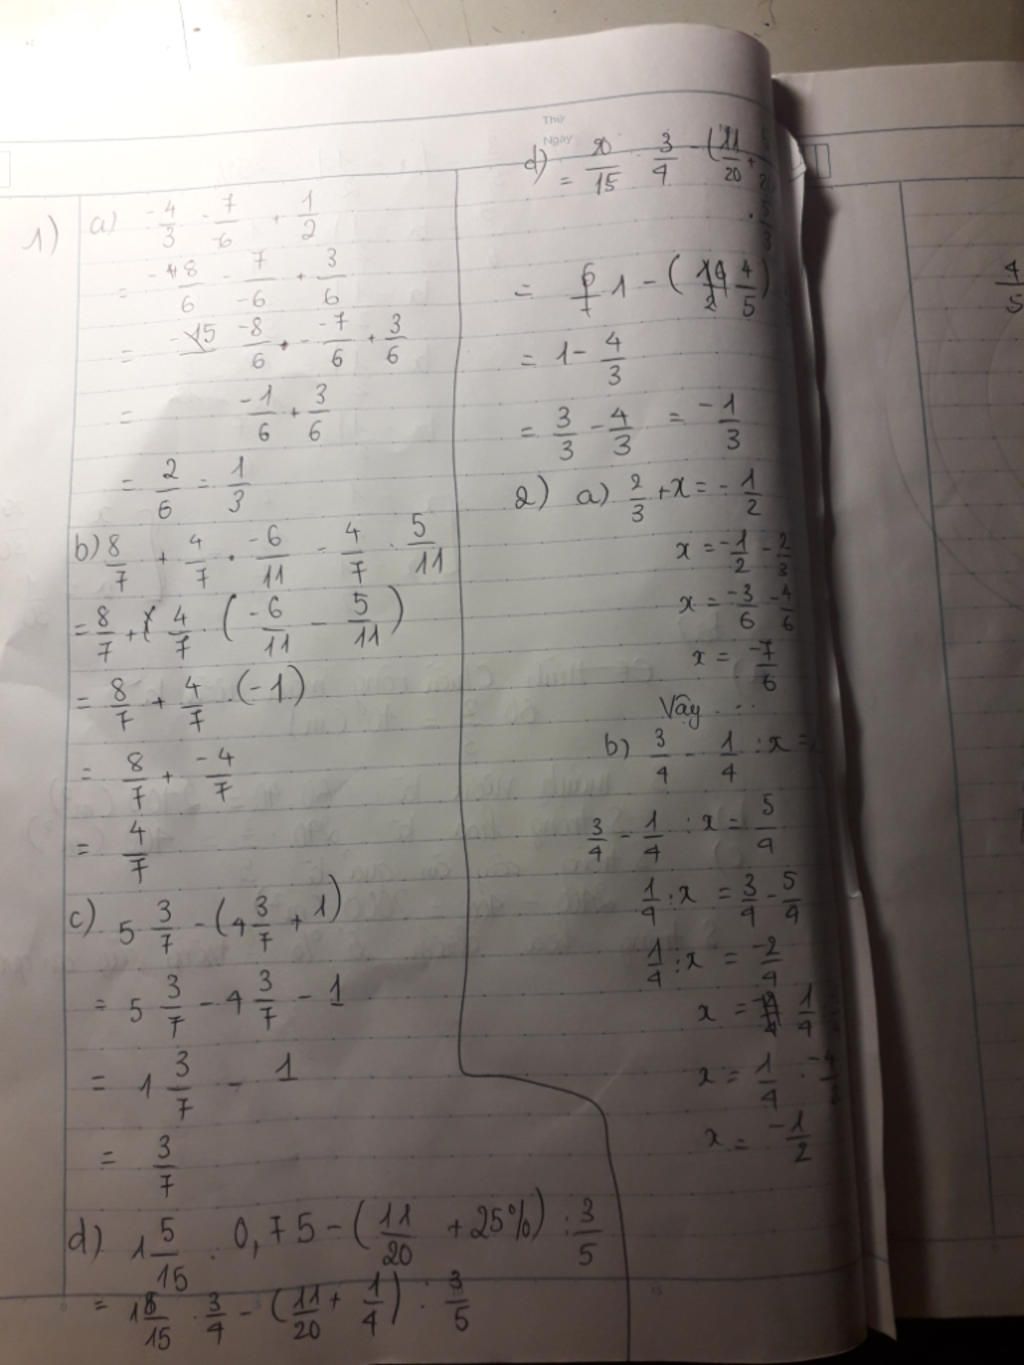 1) a) -4/3 - 7/-6 + 1/2
= -8/6 - 7/-6 + 3/6
= -8/6 - -7/6 + 3/6
= -1/6 + 3/6
= 2/6 = 1/3
b) 8/7 + 4/7 . -6/11 - 4/7 . 5/11
= 8/7 + 4/7 . (-6/11 - 5/11)
= 8/7 + 4/7 . (-1)
= 8/7 + -4/7
= 4/7
c) 5 3/7 - (4 3/7 + 1)
= 5 3/7 - 4 3/7 - 1
= 1 3/7 - 1
= 3/7
d) 1 5/15 . 0,75 - (11/20 + 25%) : 3/5
= 1 5/15 . 3/4 - (11/20 + 1/4) : 3/5
Thứ
Ngày
d) = 20/15 . 3/4 - (11/20 +
= 1 - ( 4/5 )
= 1 - 4/3
= 3/3 - 4/3 = -1/3
2) a) 2/3 + x = -1/2
x = -1/2 - 2/3
x = -3/6 - 4/6
x = -7/6
Vậy ...
b) 3/4 - 1/4 : x =
3/4 - 1/4 : x = 5/4
1/4 : x = 3/4 - 5/4
1/4 : x = -2/4
x = 1/4
x = 1/4 .
x = -1/2
4/5